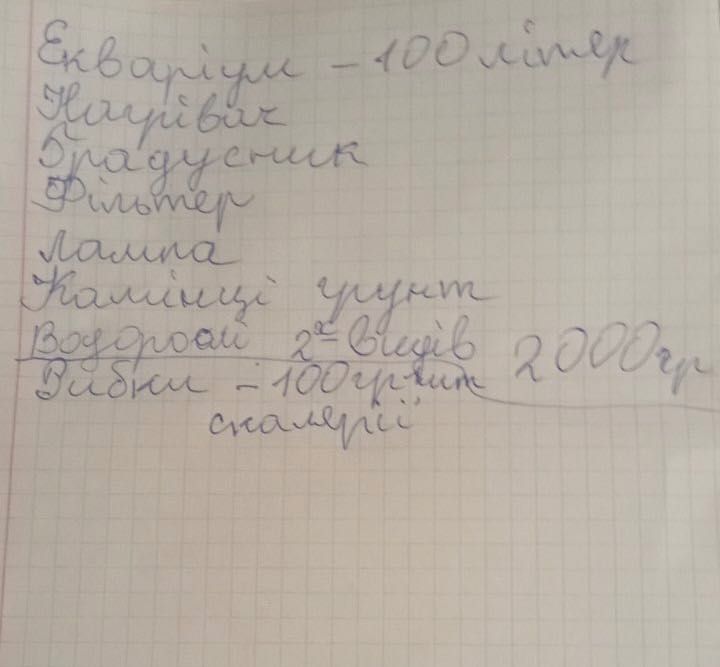 Екваріум – 100 літер
Нагрівач
Градусник
Фільтер
Лампа
Камінці грунт
Водоролі 2х видів 2000гр
Рибки – 100гр шт
скалярії